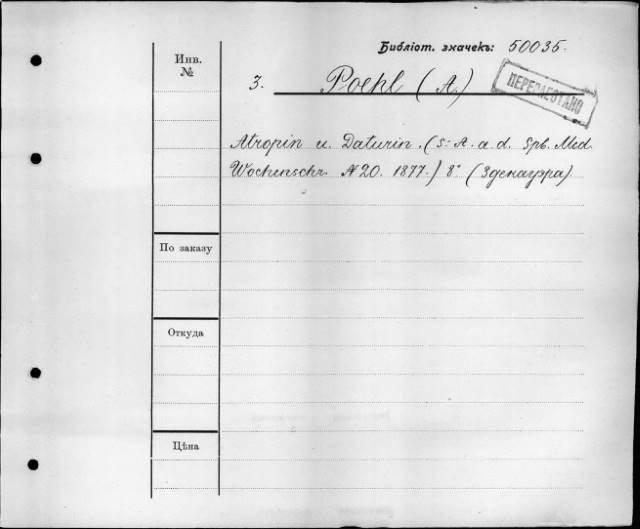 Библіот. значекъ: 50035.
Инв.
№
3. Poehl (A.)
ПЕРЕПЛЕТАНО
Atropin u. Daturin. (S. A. a. d. Spb. Med.
Wochenschr. N 20. 1877.) 8° (Зденауэра)
По заказу
Откуда
Цѣна